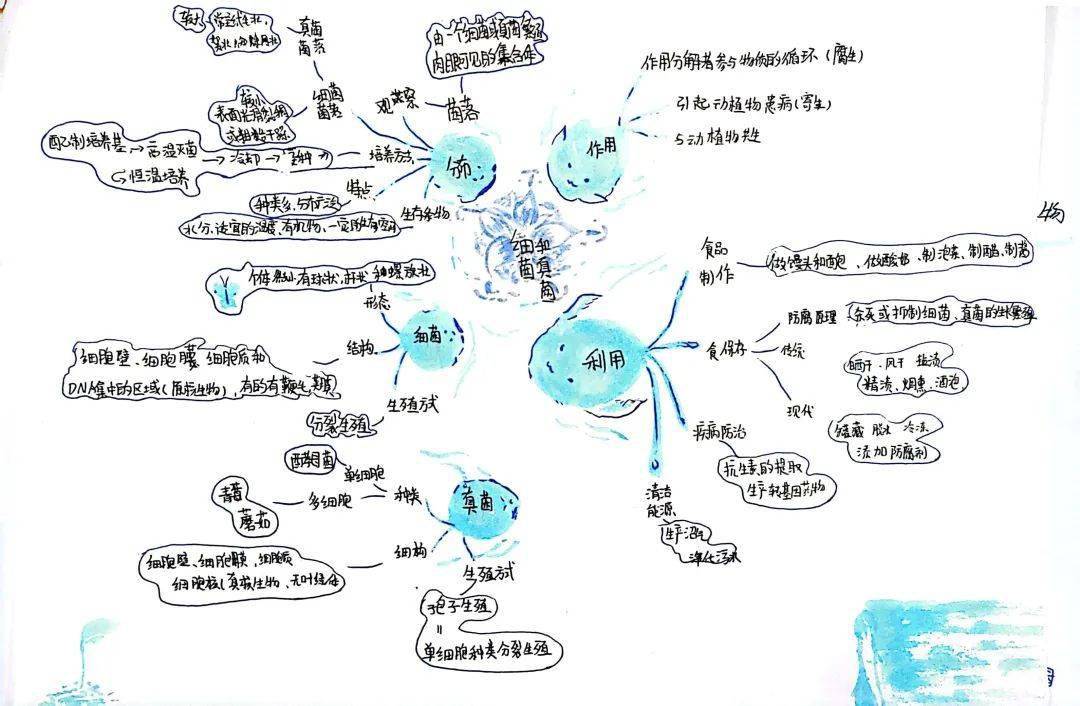 细菌和真菌
分布
菌落
由一个细菌或真菌繁殖
肉眼可见的集合体
观察
真菌
菌落
较大
常呈绒毛状
絮状
细菌
菌落
较小
表面
或粗糙干燥
培养方法
配制培养基→高温灭菌
→冷却→接种
恒温培养
特点
种类多、分布广泛
生存条物
水分、适宜的温度、有机物、一定的生存空间
作用
作用分解者参与物质的循环(腐生)
引起动植物患病(寄生)
与动植物共生
物
细菌
形态
个体微小有球状、杆状和螺旋状
结构
细胞壁、细胞膜、细胞质和
DNA集中的区域(原核生物),有的有鞭毛、荚膜
生殖方式
分裂生殖
真菌
种类
单细胞
酵母菌
多细胞
青霉
蘑菇
细构
细胞壁、细胞膜、细胞质
细胞核(真核生物、无叶绿体
生殖方式
孢子生殖
单细胞种类分裂生殖
利用
食品
制作
做馒头和面包、做酸奶、制泡菜、制醋、制酱
食保存
防腐原理
杀死或抑制细菌、真菌的生长繁殖
传统
晒干、风干 盐渍
糖渍、烟熏、酒泡
现代
脱水 冷冻
添加防腐剂
疾病防治
抗生素的提取
生产转基因药物
清洁
能源
生产沼气
净化污水